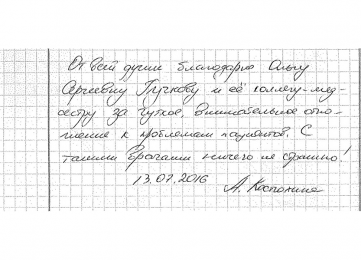 От всей души благодарю Ольгу
Сергеевну Глушкову и её коллегу-мед-
сестру за чуткое, внимательное отно-
шение к проблемам пациентов. С
такими врачами ничего не страшно!
13.07.2016
А.